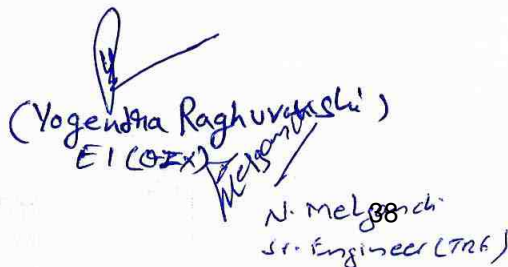 (Yogendra Raghuvanshi)
EI (OEX)
N. Melgandi
38
Sr. Engineer (TRG)